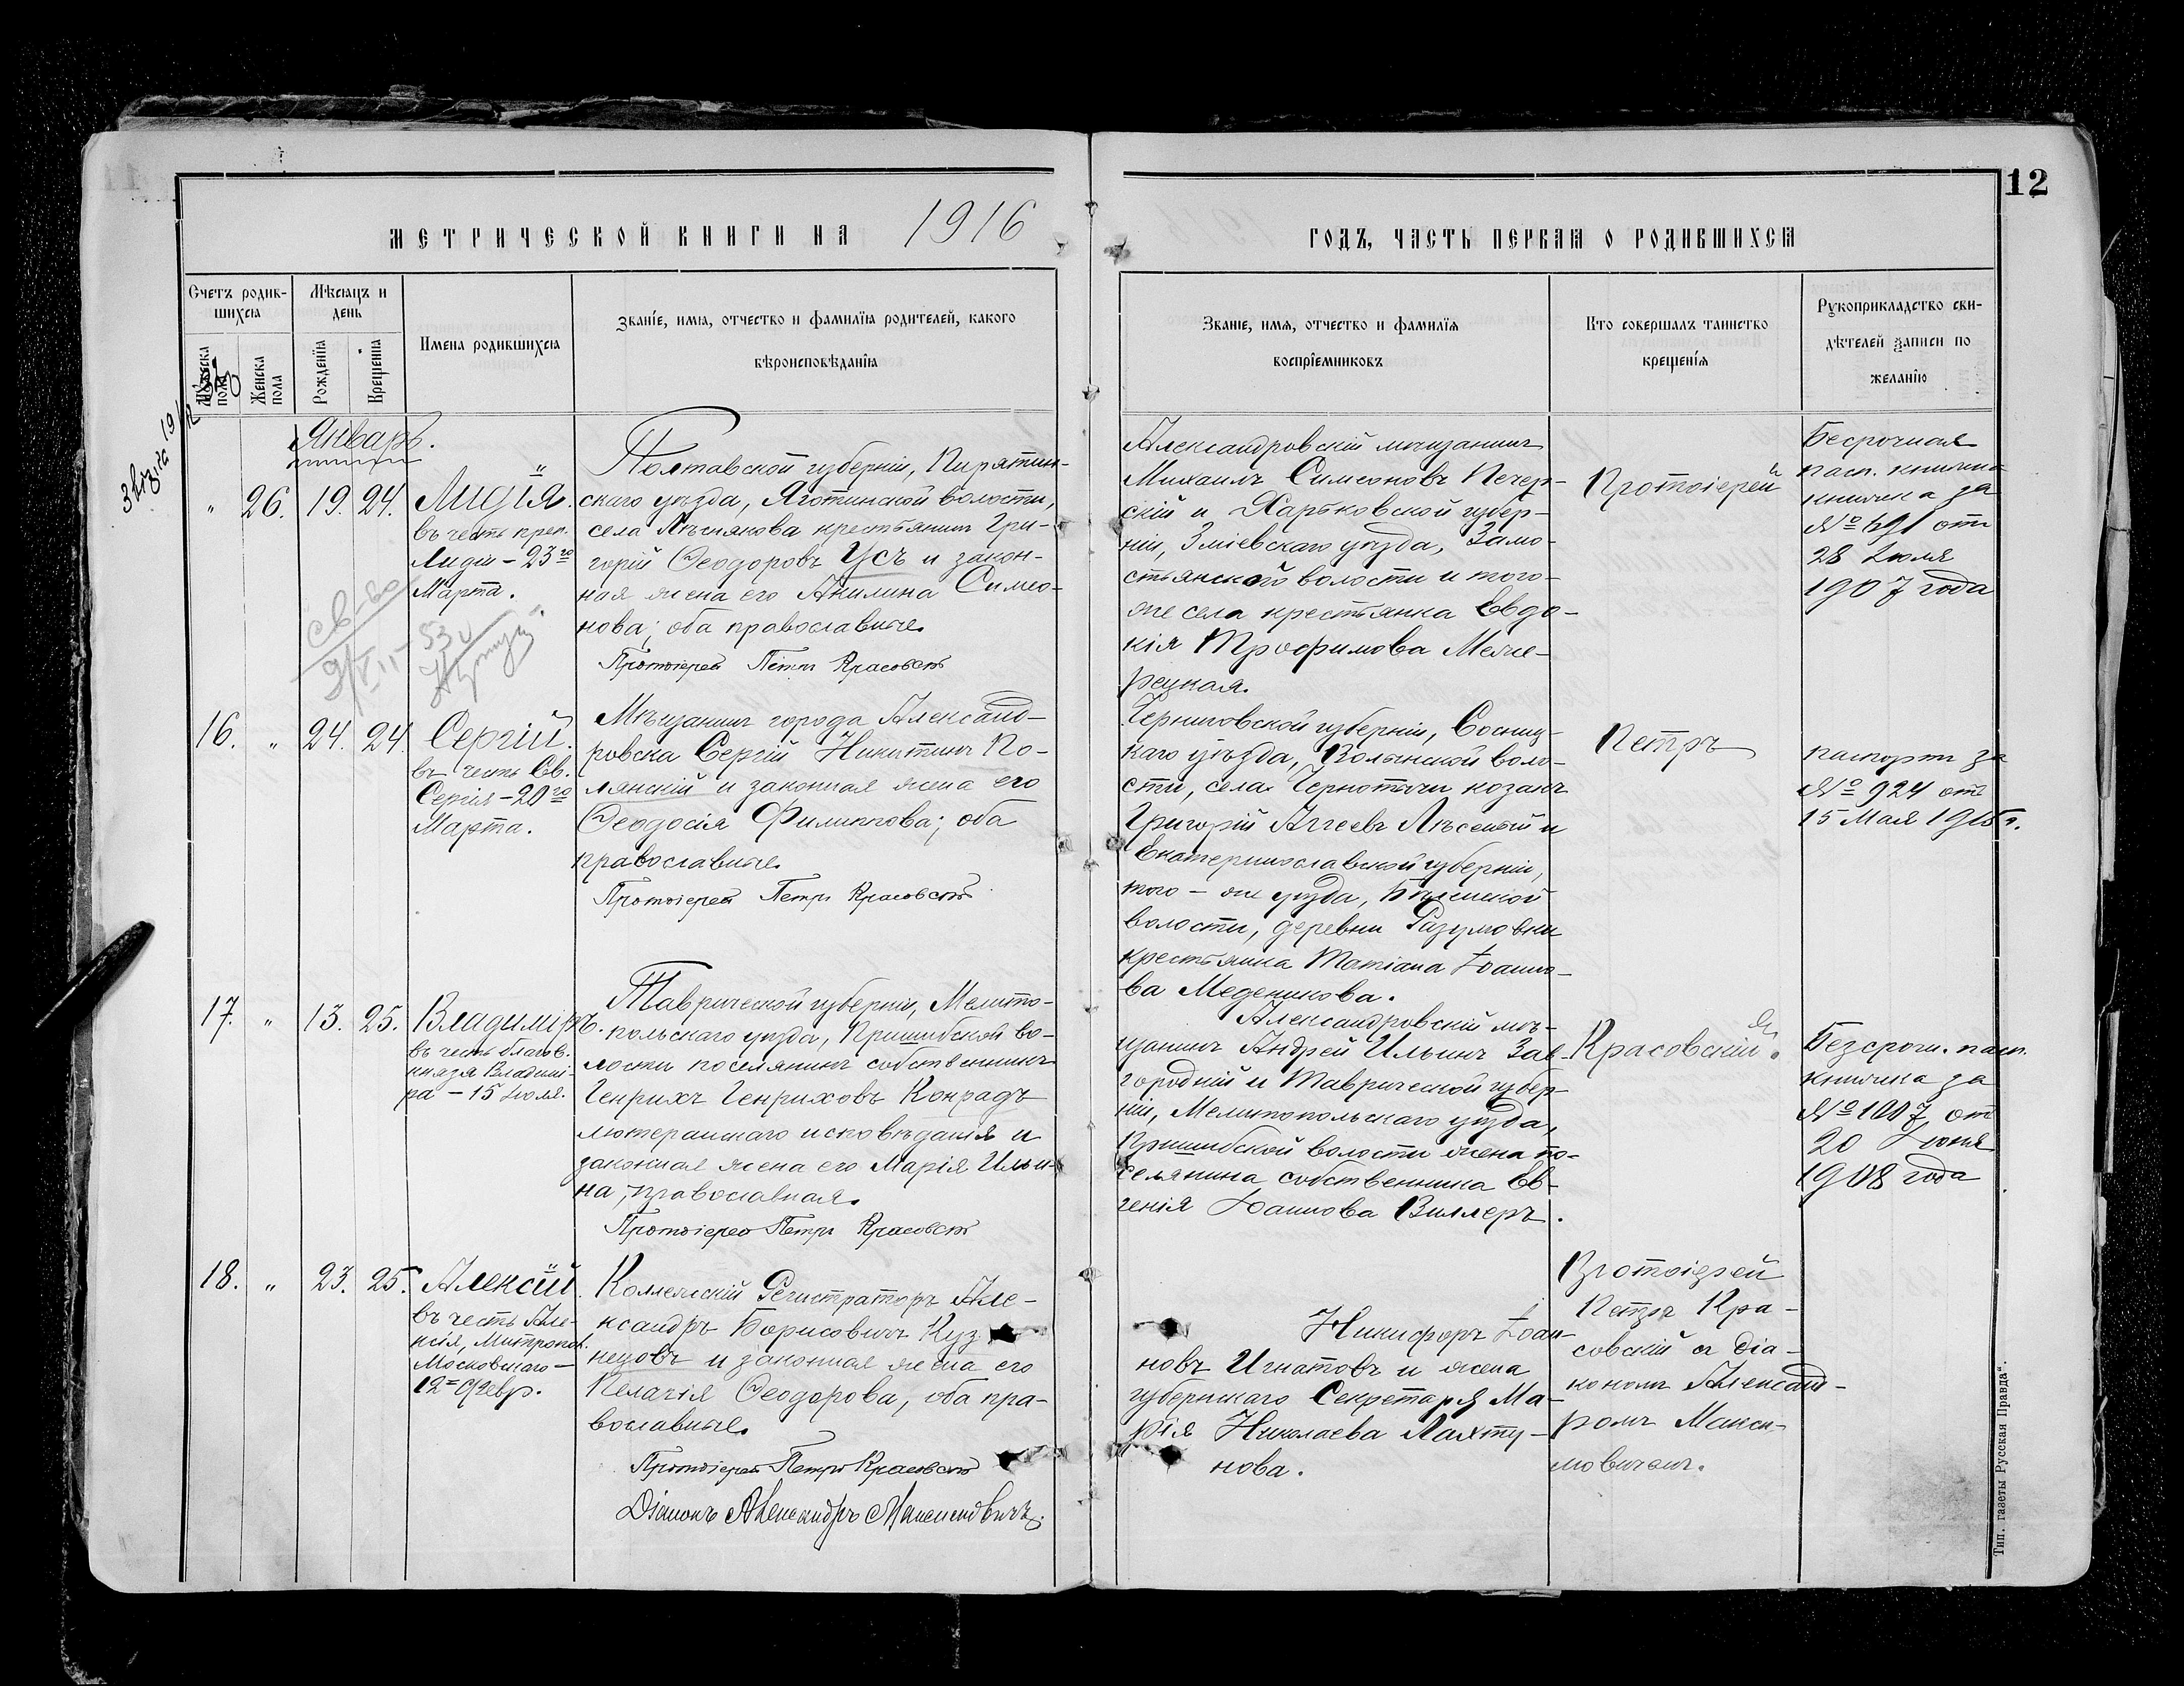 12
МЕТРИЧЕСКОЙ КНИГИ НА 1916
ГОДЪ, ЧАСТЬ ПЕРВАЯ О РОДИВШИХСЯ
Счетъ родив-
шихся
Мужеска пола
Женска пола
Мѣсяцъ и
день
Рожденія
Крещенія
Имена родившихся
Званіе, имя, отчество и фамилія родителей, какого
вѣроисповѣданія
Званіе, имя, отчество и фамилія
воспріемниковъ
Кто совершалъ таинство
крещенія
Рукоприкладство сви-
дѣтелей записи по
желанію
Январь.
" 26. 19. 24.
Лидія.
въ честь преп.
Лидіи - 23го
Марта.
Полтавской губерніи, Пирятин-
скаго уѣзда, Яготинской волости,
села Лѣснякова крестьянинъ Гри-
горій Ѳеодоровъ Усъ и закон-
ная жена его Акилина Симео-
нова; оба православные.
Протоіерей Петръ Красовскій
Александровскій мѣщанинъ
Михаилъ Симеоновъ Печер-
скій и Харьковской губер-
ніи, Зміевскаго уѣзда, Замо-
стьянской волости и того-
же села крестьянка Евдо-
кія Трофимова Меже-
рецкая.
Протоіерей
Безсрочная
пасп. книжка
книжка за
№ 691 отъ
28 Іюля
1907 года
16. " 24. 24.
Сергій.
въ честь Св.
Сергія - 20го
Марта.
Мѣщанинъ города Александ-
ровска Сергій Никитинъ По-
лянскій и законная жена его
Ѳеодосія Филиппова; оба
православные.
Протоіерей Петръ Красовскій
Черниговской губерніи, Сосниц-
каго уѣзда, Волынской воло-
сти, села Чернотичи козакъ
Григорій Аггеевъ Лѣсеный и
Екатеринославской губерніи,
того-же уѣзда, Бѣленской
волости, деревни Разумовки
крестьянка Татіана Іоанно-
ва Меденикова.
Петръ
паспортъ за
№ 924 отъ
15 Мая 1915 г.
17. " 13. 25.
Владиміръ.
въ честь благов.
князя Владимі-
ра - 15 Іюля.
Таврической губерніи, Мелито-
польскаго уѣзда, Пришибской во-
лости поселянинъ собственникъ
Генрихъ Генриховъ Конрадъ
лютеранскаго исповѣданія и
законная жена его Марія Ильи-
на, православная.
Протоіерей Петръ Красовскій
Александровскій мѣ-
щанинъ Андрей Ильинъ Заг-
городній и Таврической губер-
ніи, Мелитопольскаго уѣзда,
Пришибской волости жена по-
селянина собственника Ев-
генія Іоаннова Виллеръ.
Красовскій.
Безсрочн. пасп.
книжка за
№ 1007 отъ
20 Іюня
1908 года
18. " 23. 25.
Алексій.
въ честь Але-
ксія, Митропол.
Московскаго -
12го Февр.
Коллежскій Регистраторъ Але-
ксандръ Борисовичъ Куз-
нецовъ и законная жена его
Пелагія Ѳеодорова, оба пра-
вославные.
Протоіерей Петръ Красовскій
Діаконъ Александръ Максимовичъ.
Никифоръ Іоан-
новъ Игнатовъ и жена
губернскаго Секретаря Ма-
рія Николаева Лахту-
нова.
Протоіерей
Петръ Кра-
совскій съ діа-
кономъ Александ-
ромъ Макси-
мовичемъ.
Тип. газеты „Русская Правда“.